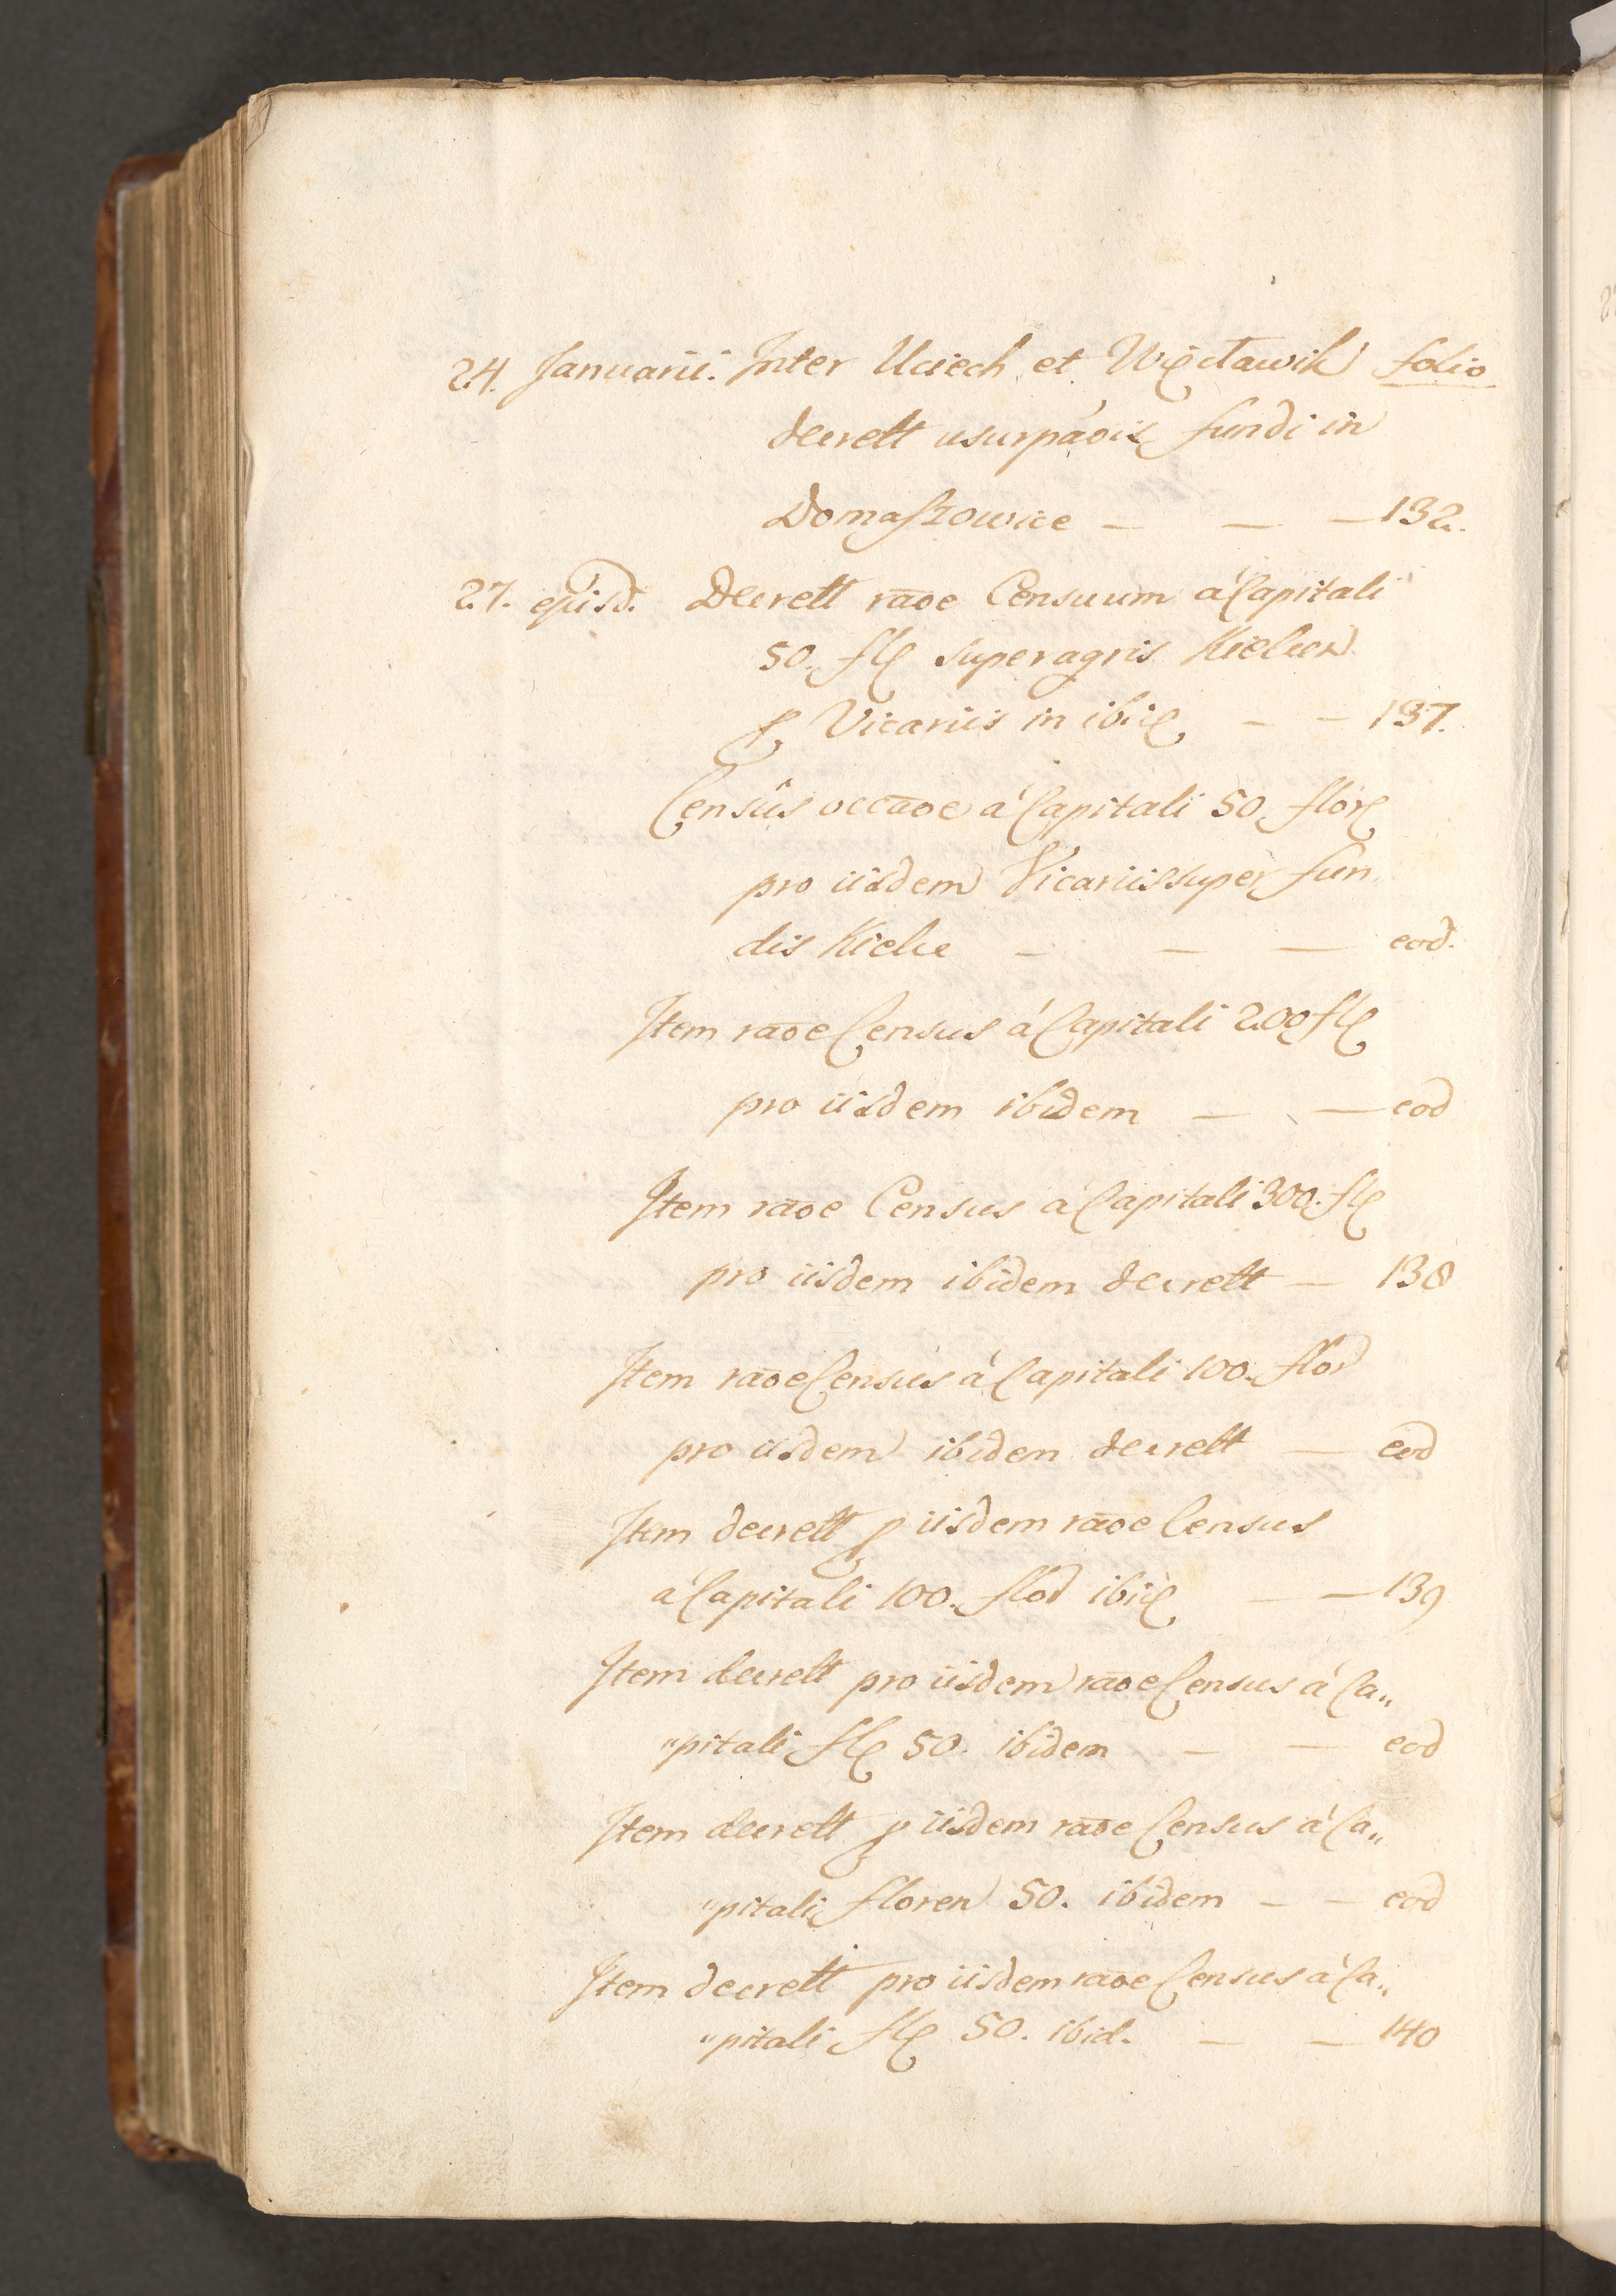 24. Januarii. Inter Uciech et Węcławik folio
decrett usurpãois fundi in
Domaszowice — — — 132.
27. ejusd. Decrett rãoe Censuum á Capitali
50. fl. super agris Kielcen
p Vicariis in ibid. — — 137.
Censûs occãoe á Capitali 50. flor.
pro iisdem Vicariis super fun„
dis Kielce — — — eod.
Item rãoe Census á Capitali 200 fl.
pro iisdem ibidem — — eod
Item rãoe Census á Capitali 300. fl.
pro iisdem ibidem decrett — 138
Item rãoe Census á Capitali 100. flor
pro iisdem ibidem decrett — eod
Item decrett p iisdem rãoe Census
á Capitali 100. flor ibid. — — 139
Item decrett pro iisdem rãoe Census á Ca„
„pitali fl. 50. ibidem — — eod
Item decrett p iisdem rãoe Census á Ca„
„pitali floren 50. ibidem — — eod
Item decrett pro iisdem rãoe Census á Ca„
„pitali fl. 50. ibid. — — 140